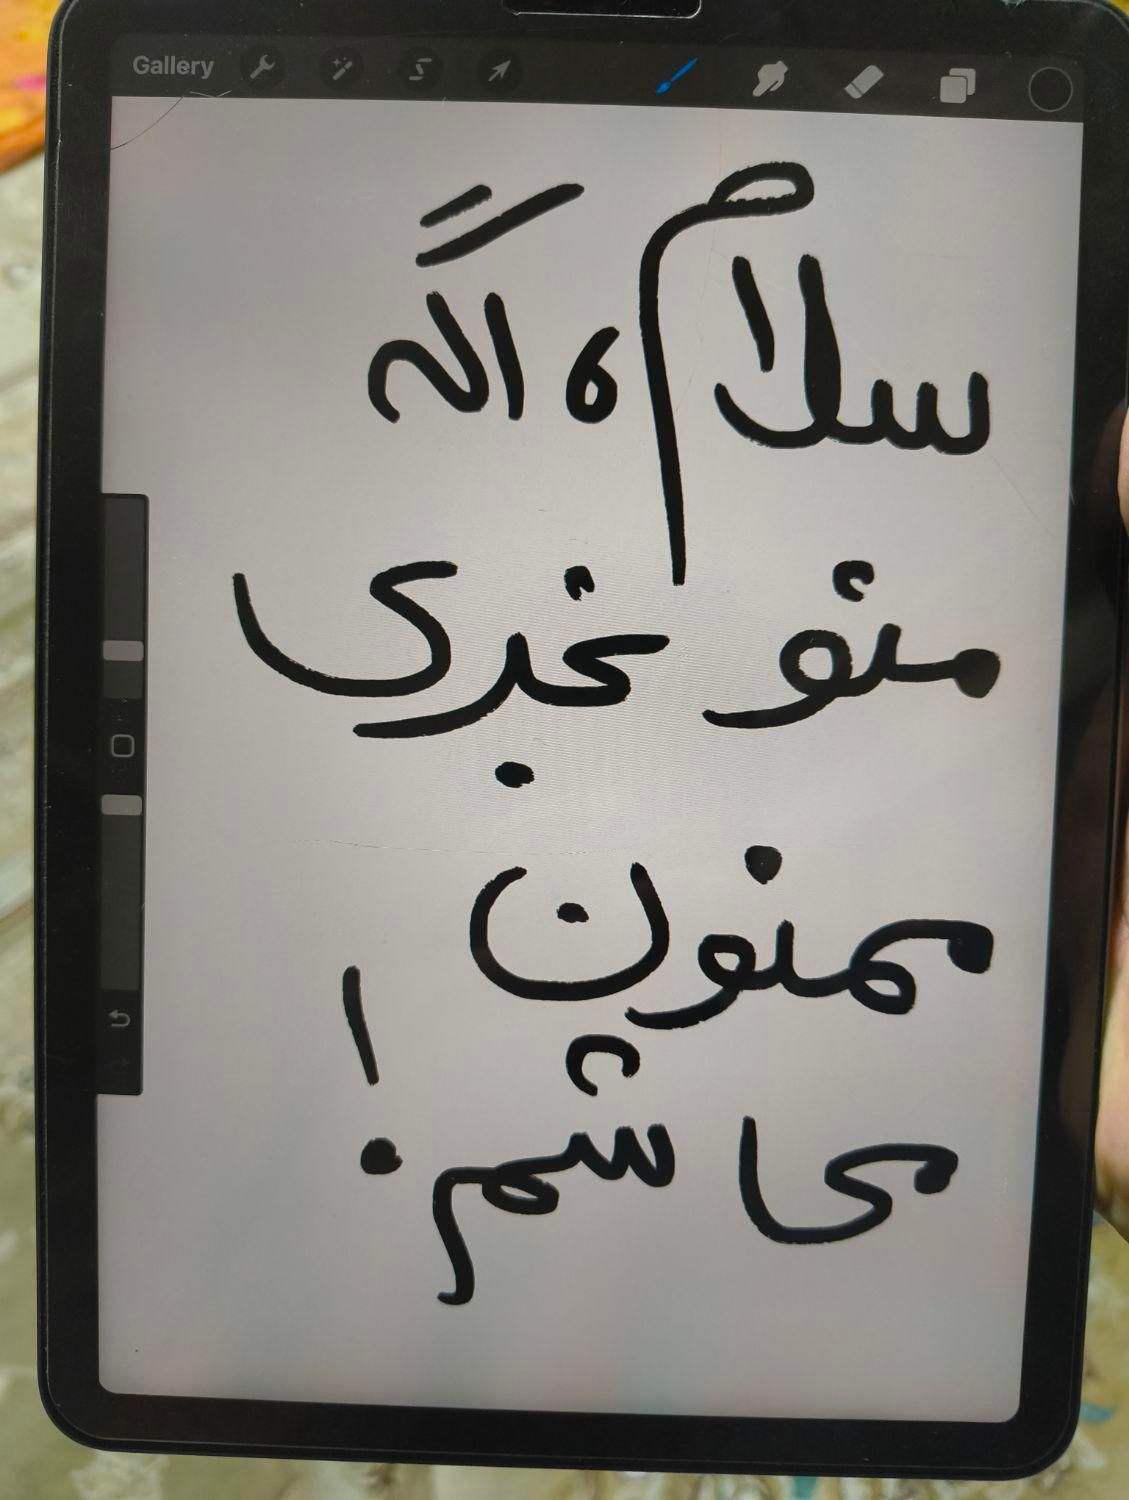 Gallery
سلام، اگه
منو نخری
ممنون
می‌شم!